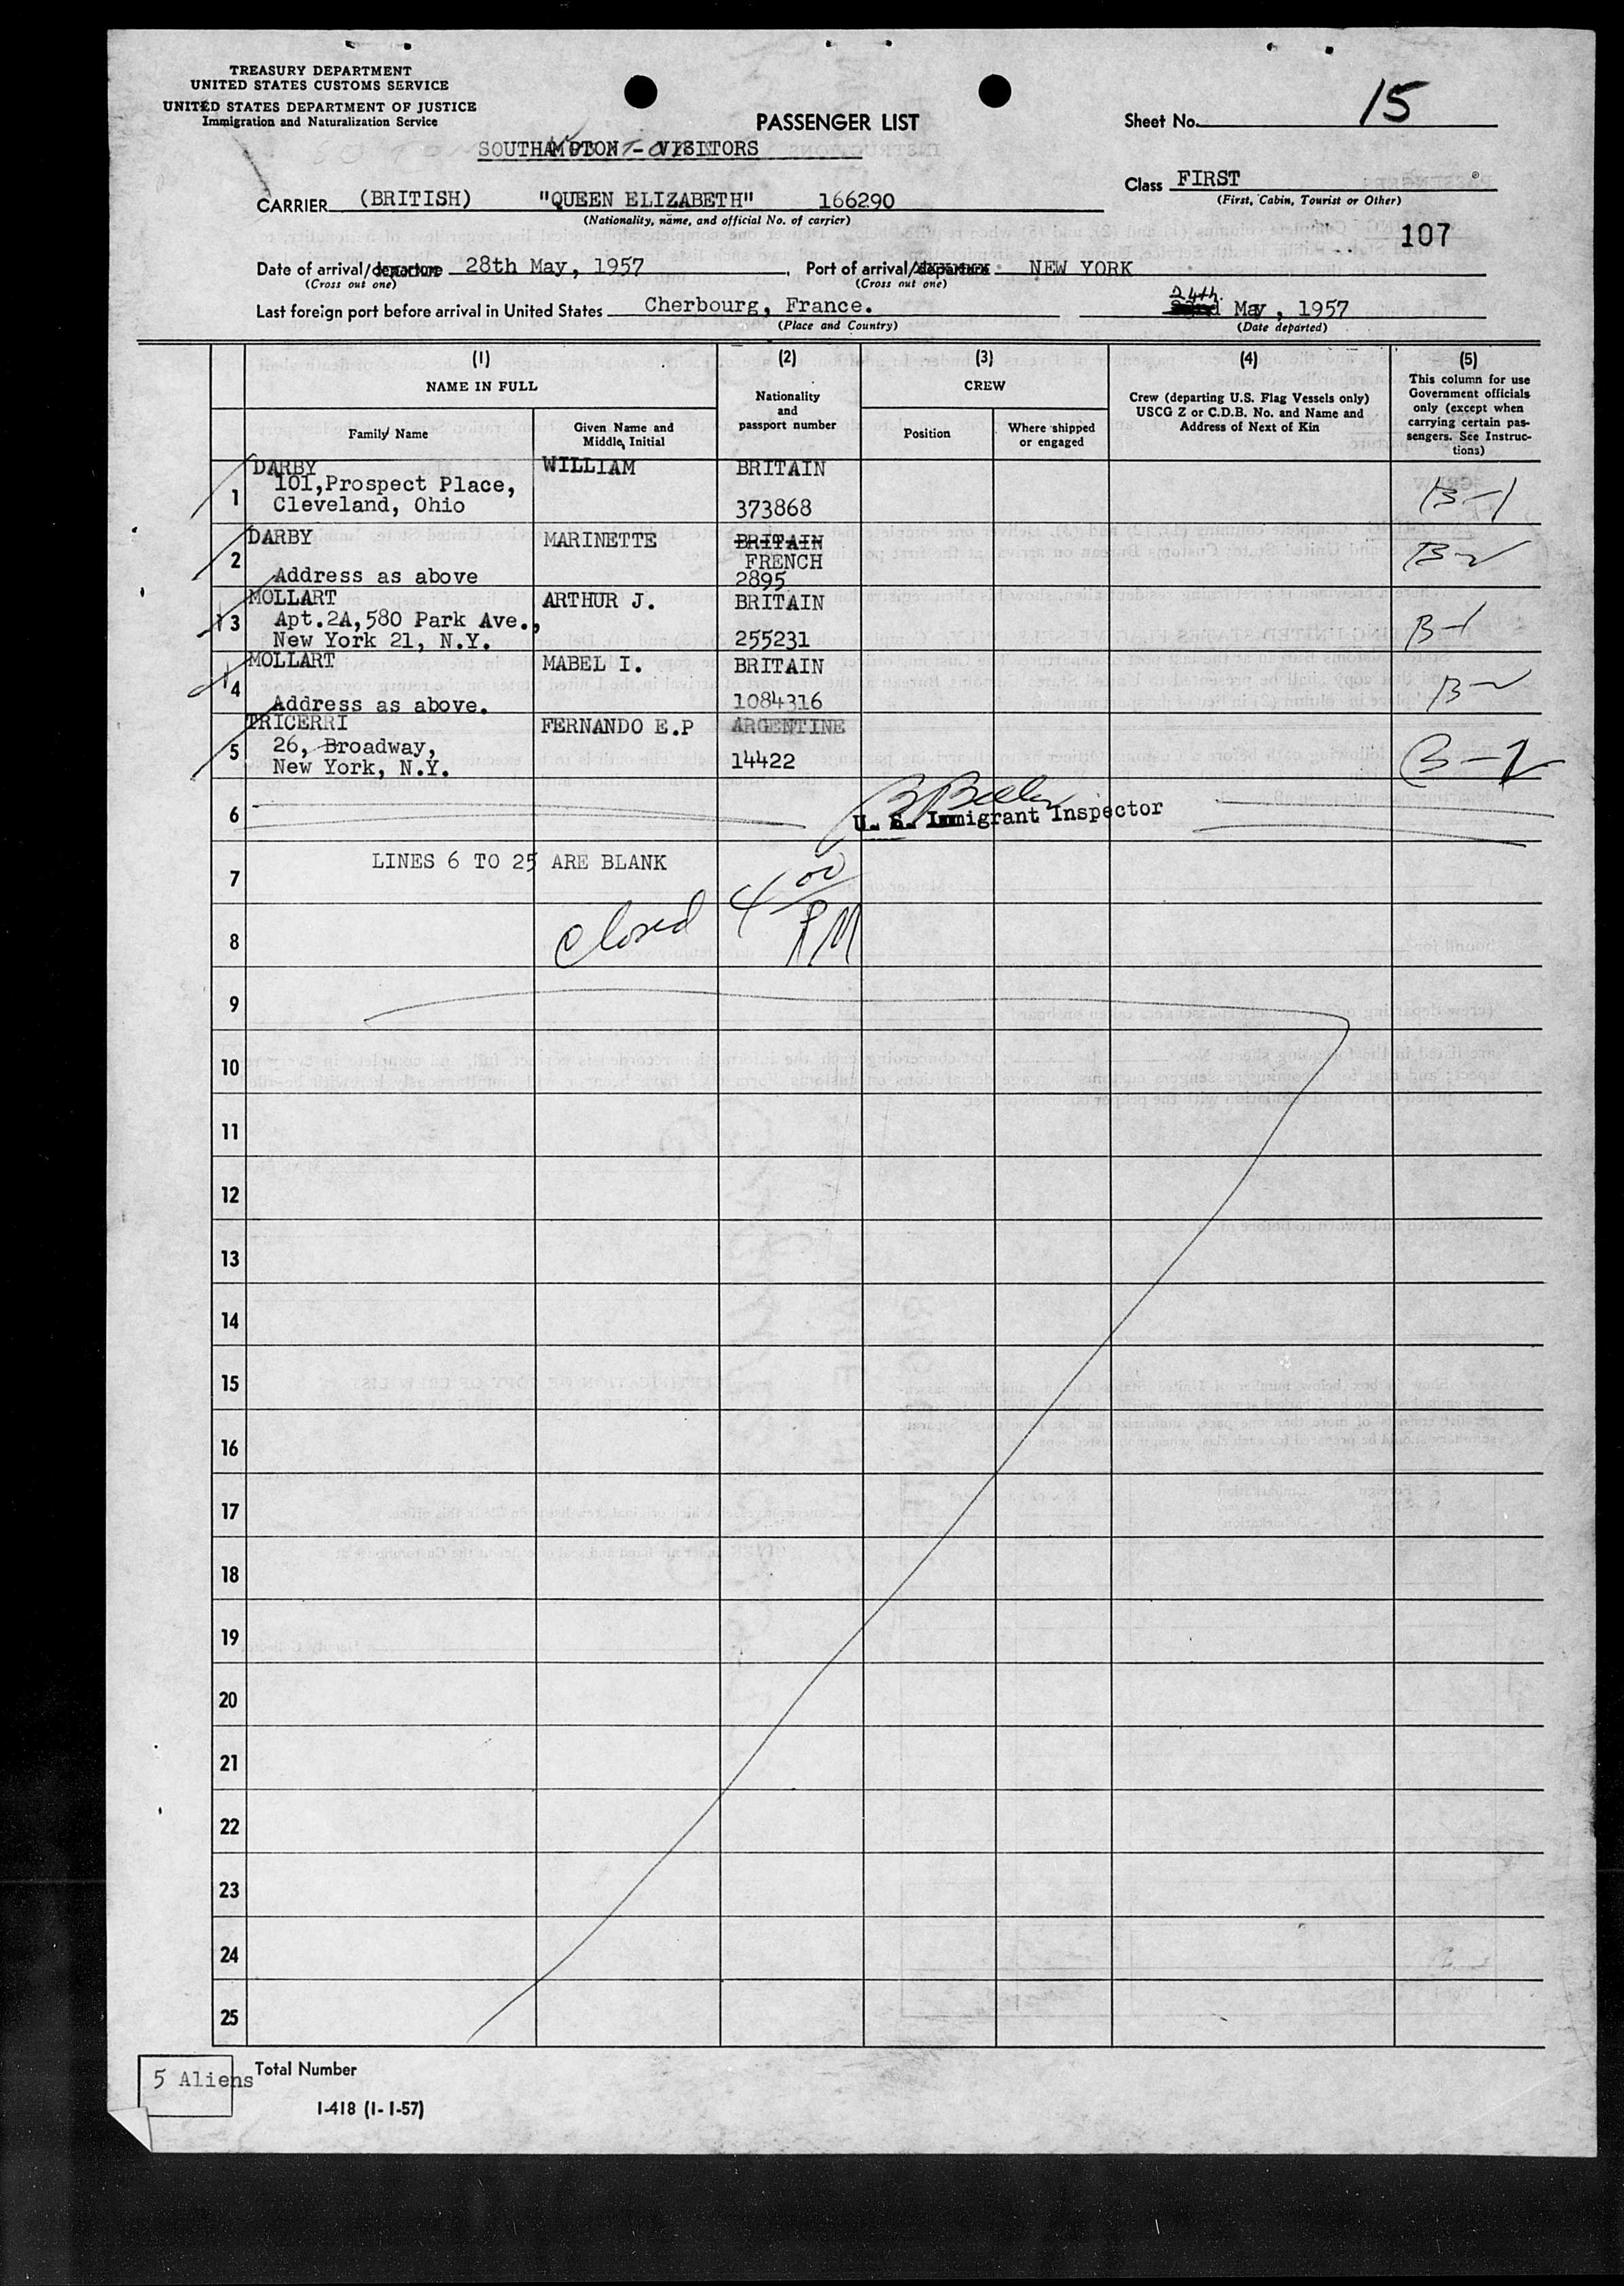 TREASURY DEPARTMENT
UNITED STATES CUSTOMS SERVICE
UNITED STATES DEPARTMENT OF JUSTICE
Immigration and Naturalization Service
PASSENGER LIST
Sheet No. 15
SOUTHAMPTON - VISITORS
Class FIRST
(First, Cabin, Tourist or Other)
CARRIER (BRITISH) "QUEEN ELIZABETH" 166290
(Nationality, name, and official No. of carrier)
107
Date of arrival/departure 28th May, 1957, Port of arrival/departure NEW YORK
(Cross out one) (Cross out one)
Last foreign port before arrival in United States Cherbourg, France. 24th May, 1957
(Place and Country) (Date departed)
(1) (2) (3) (4) (5)
NAME IN FULL
Family Name
Given Name and Middle Initial
Nationality
and
passport number
CREW
Position
Where shipped
or engaged
Crew (departing U.S. Flag Vessels only)
USCG Z or C.D.B. No. and Name and
Address of Next of Kin
This column for use
Government officials
only (except when
carrying certain pas-
sengers. See Instruc-
tions)
1 DARBY WILLIAM BRITAIN B-1
101,Prospect Place,
Cleveland, Ohio 373868
2 DARBY MARINETTE BRITAIN B-2
FRENCH
Address as above 2895
3 MOLLART ARTHUR J. BRITAIN B-1
Apt.2A,580 Park Ave.,
New York 21, N.Y. 255231
4 MOLLART MABEL I. BRITAIN B-2
Address as above. 1084316
5 TRICERRI FERNANDO E.P ARGENTINE B-2
26, Broadway,
New York, N.Y. 14422
6
U. S. Immigrant Inspector
7 LINES 6 TO 25 ARE BLANK
8 closed 4 00 PM
9
10
11
12
13
14
15
16
17
18
19
20
21
22
23
24
25
5 Aliens Total Number
I-418 (1-1-57)